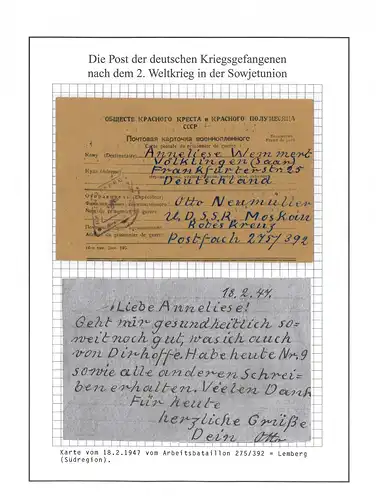 Die Post der deutschen Kriegsgefangenen
nach dem 2. Weltkrieg in der Sowjetunion
ОБЩЕСТВ КРАСНОГО КРЕСТА и КРАСНОГО ПОЛУМЕСЯЦА
СССР
Почтовая карточка военнопленного
Carte postale du prisonnier de guerre
Кому (Destinataire) Anneliese Wemmert
Völklingen (Saar)
Куда (Adresse) Frankfurterstr 25
Deutschland
Отправитель (Expéditeur) Otto Neumüller
U.D.S.S.R, Moskau
Rotes Kreuz
Postfach 275/392
18.2.47.
Liebe Anneliese!
Geht mir gesundheitlich so-
weit noch gut, was ich auch
von Dir hoffe. Habe heute Nr. 9
sowie alle anderen Schrei-
ben erhalten. Vielen Dank
Für heute
herzliche Grüße
Dein Otto
Karte vom 18.2.1947 vom Arbeitsbataillon 275/392 = Lemberg
(Südregion).